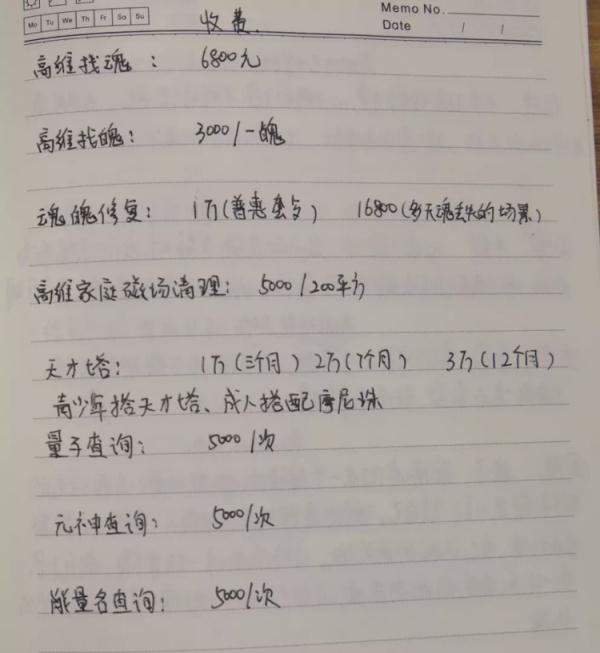 Memo No.
Mo Tu We Th Fr Sa Su
Date / /
收费
高维找魂： 6800元
高维找魄： 3000/一魄
魂魄修复： 1万(普惠套与) 16800(多天魂丢失的场景)
高维家庭磁场清理： 5000/200平方
天才塔： 1万(三个月) 2万(7个月) 3万(12个月)
青少年搭天才塔、成人搭配摩尼珠
量子查询： 5000/次
元神查询： 5000/次
能量名查询： 5000/次